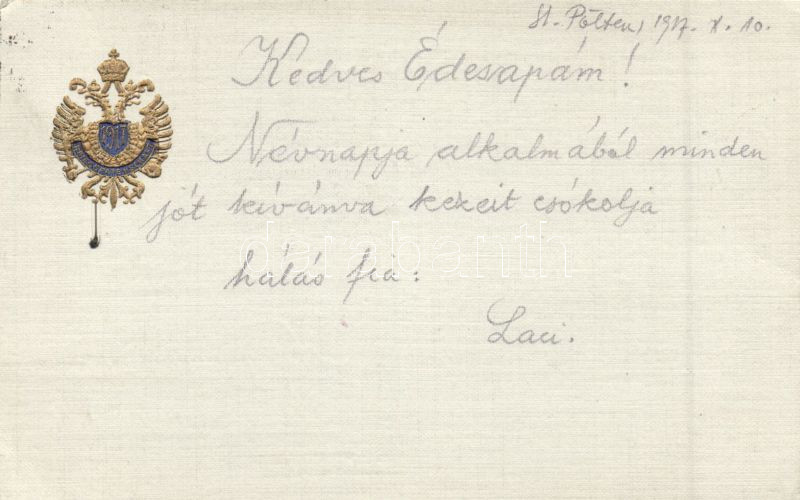 St. Pölten, 1917. X. 10.
Kedves Édesapám!
1917
Névnapja alkalmából minden
jót kívánva kezeit csókolja
darabanth
hálás fia:
Laci.